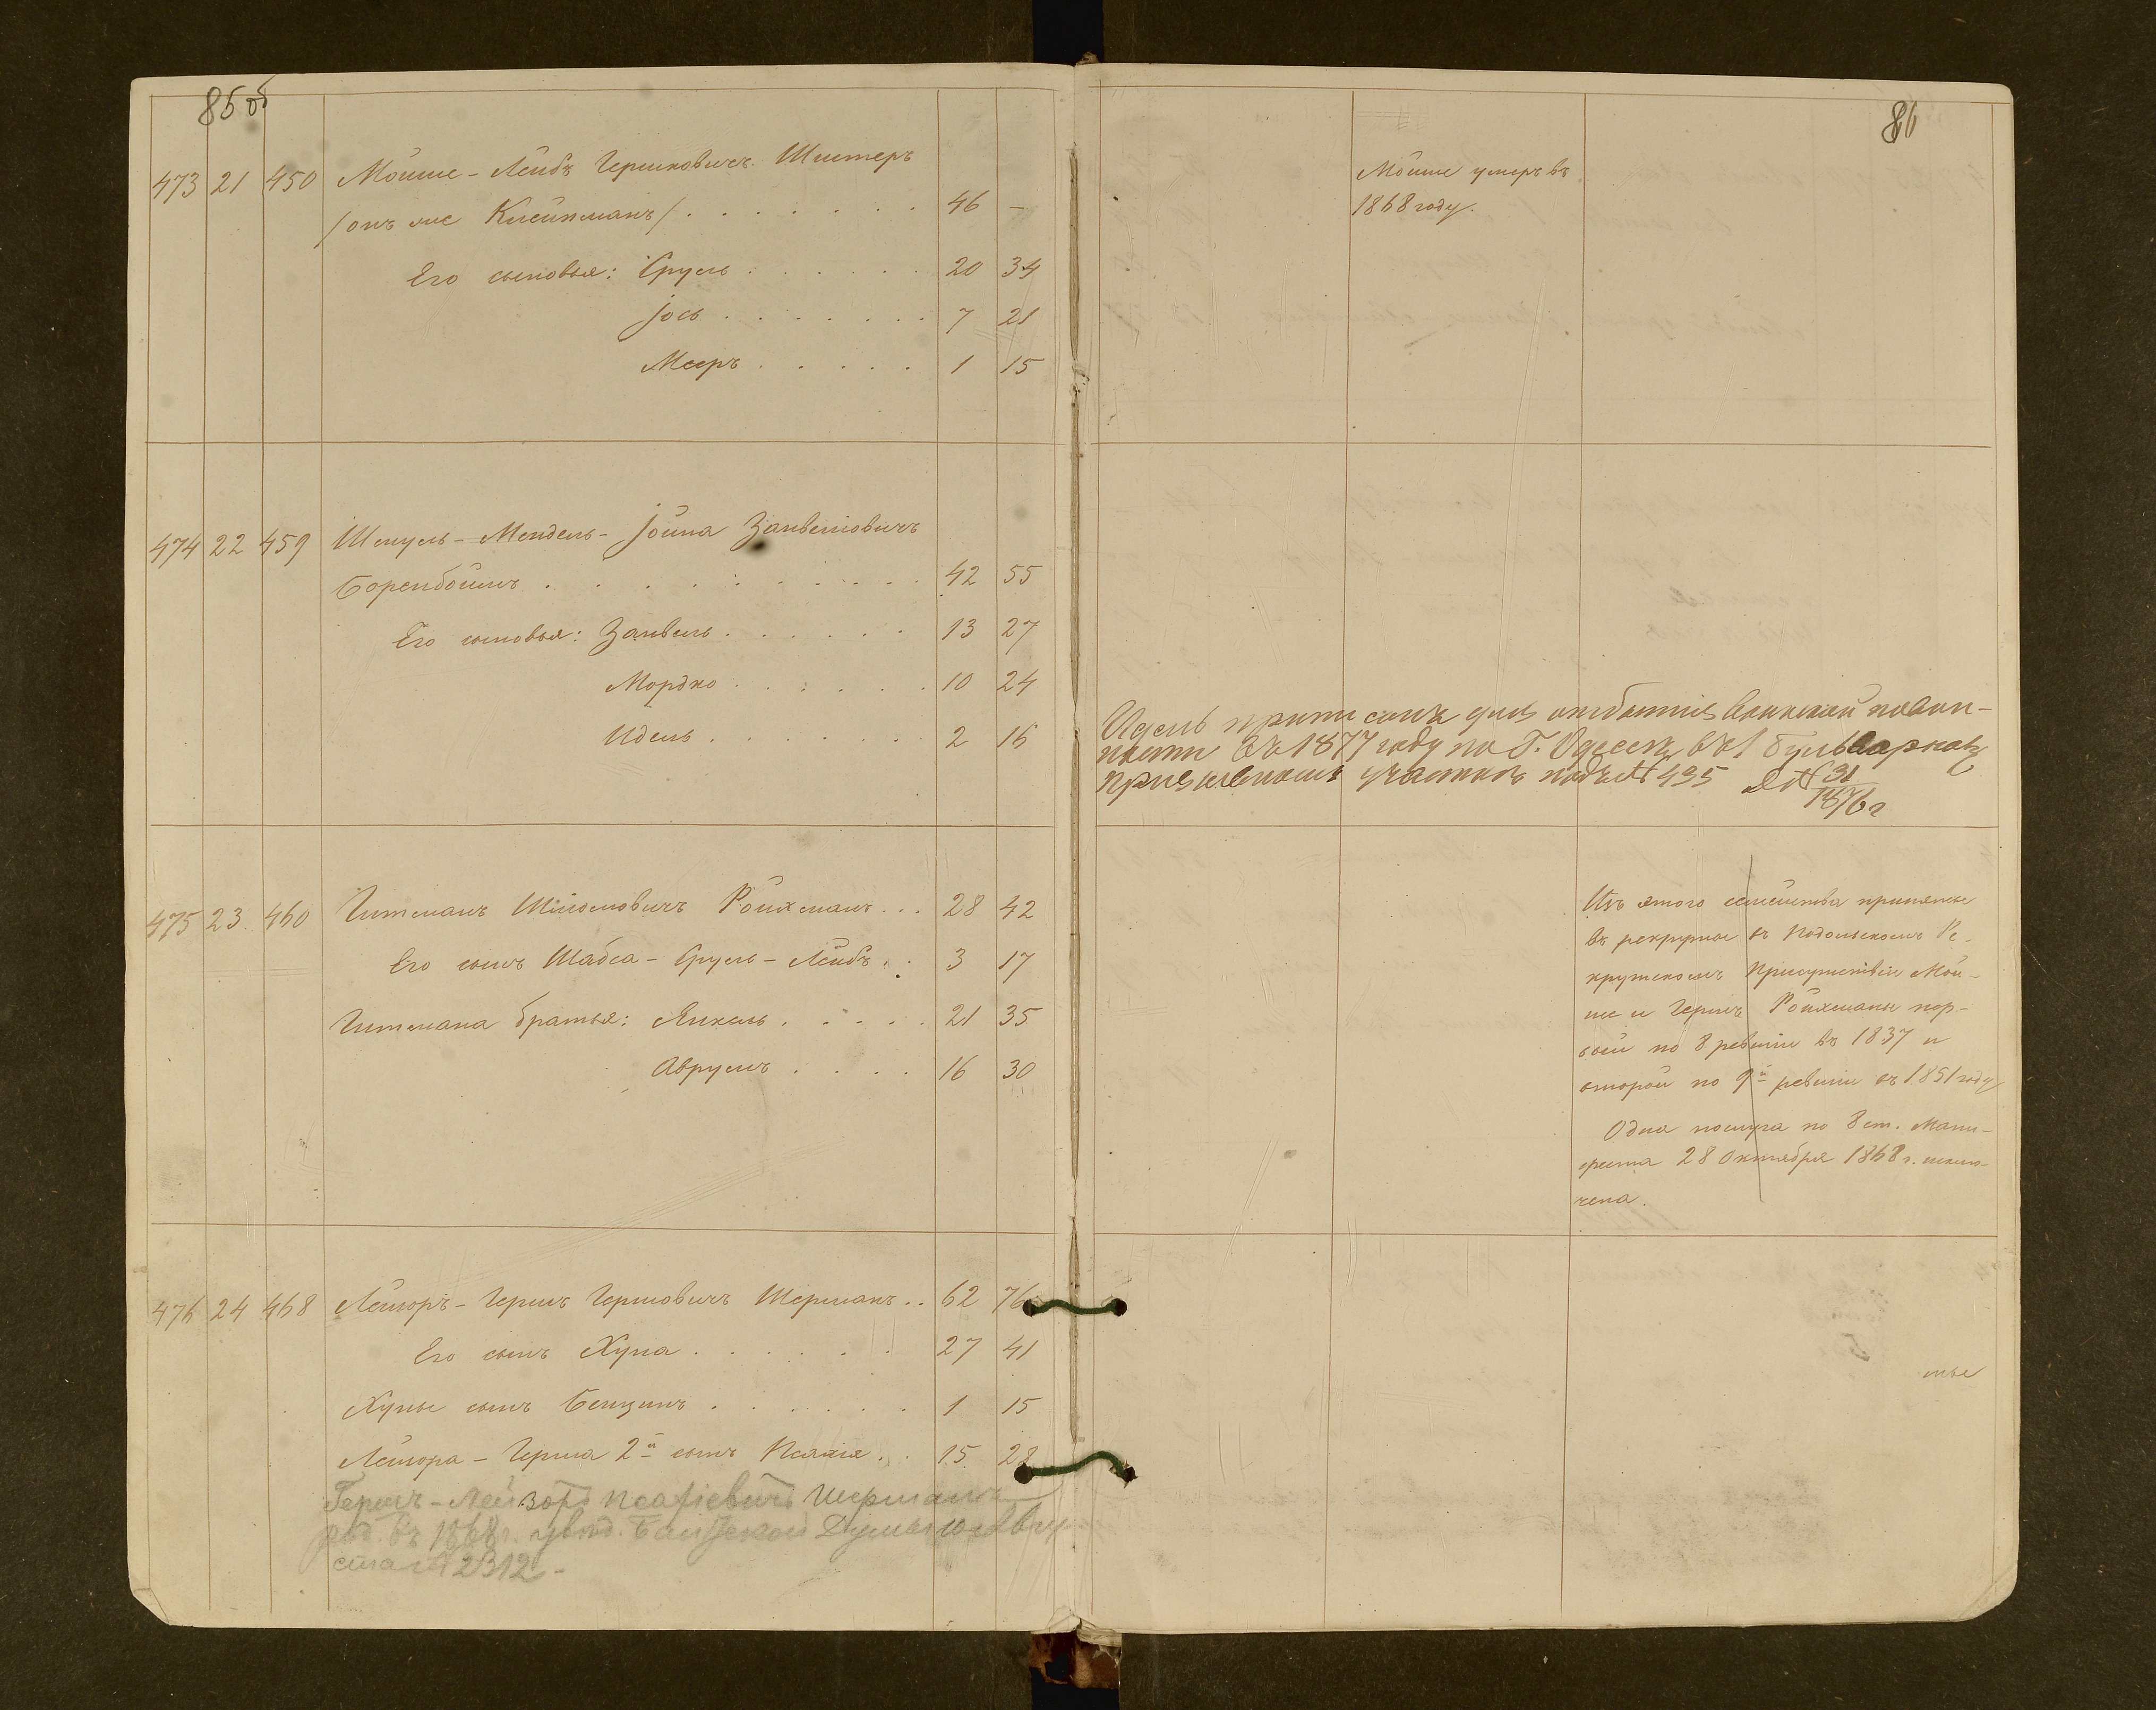 85 об
473 21 450 Мойше - Лейбъ Гершковичъ Шистеръ
/онъ же Клейнманъ/ . . . . . . . 46 –
Его сыновья: Сруль . . . . . . 20 34
Іось . . . . . . . . 7 21
Мееръ . . . . . 1 15
474 22 459 Шмуль - Мендель - Іойна Занвеліовичъ
Боренбоймъ . . . . . . . . . . 42 55
Его сыновья: Занвель . . . . . . 13 27
Мордко . . . . . . 10 24
Идель . . . . . . . 2 16
475 23 460 Гитманъ Шліомовичъ Ройхманъ . . . 28 42
Его сынъ Шабса - Сруль - Лейбъ . . 3 17
Гитмана братья: Янкель . . . . . 21 35
Аврумъ . . . . 16 30
476 24 468 Лейзоръ - Гершъ Гершовичъ Шерманъ . . 62 76
Его сынъ Хуна . . . . . . 27 41
Хуны сынъ Бенцинъ . . . . . . 1 15
Лейзора - Герша 2й сынъ Псахія . . 15 28
Гершъ - Лейзоръ Псахіевичъ Шерманъ
род. въ 1868 г. увѣд. Балтской Думы 10 Авгу-
ста № 2312 -
86
Мойше умеръ въ
1868 году.
Идель приписанъ для отбытія воинской повин-
ности въ 1877 году по Г. Одессѣ въ 1 бульварномъ
призывномъ участкѣ подъ № 495 Д № 31
1876 г
Изъ этого семейства приняты
въ рекруты въ Подольскомъ Ре-
крутскомъ Присутствіи Мой-
ше и Гершъ Ройхманы пер-
вый по 8 ревизіи въ 1837 и
второй по 9й ревизіи въ 1851 году
Одна послуга по 8 ст. Мани-
феста 28 Октября 1868 г. исклю-
чена.